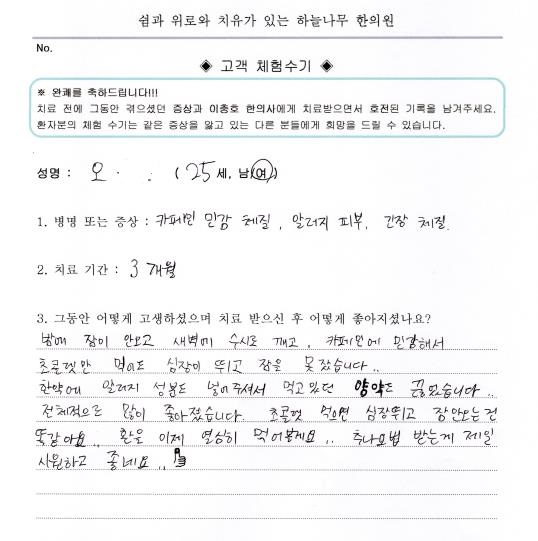 쉼과 위로와 치유가 있는 하늘나무 한의원
No.
◈ 고객 체험수기 ◈
※ 완쾌를 축하드립니다!!!
치료 전에 그동안 겪으셨던 증상과 이종호 한의사에게 치료받으면서 호전된 기록을 남겨주세요.
환자분의 체험 수기는 같은 증상을 앓고 있는 다른 분들에게 희망을 드릴 수 있습니다.
성명 : 오 . . ( 25 세, 남/여)
1. 병명 또는 증상 : 카페인 민감 체질, 알러지 피부, 긴장 체질.
2. 치료 기간 : 3 개월
3. 그동안 어떻게 고생하셨으며 치료 받으신 후 어떻게 좋아지셨나요?
밤에 잠이 안오고 새벽에 수시로 깨고, 카페인에 민감해서
초코렛만 먹어도 심장이 뛰고 잠을 못잤습니다..
한약에 알러지 성분도 넣어주셔서 먹고있던 양약도 끊었습니다..
전체적으로 많이 좋아졌습니다. 초콜렛 먹으면 심장뛰고 잠안오는건
똑같아요.. 환을 이제 열심히 먹어볼게요.. 추나요법 받는게 제일
시원하고 좋네요..